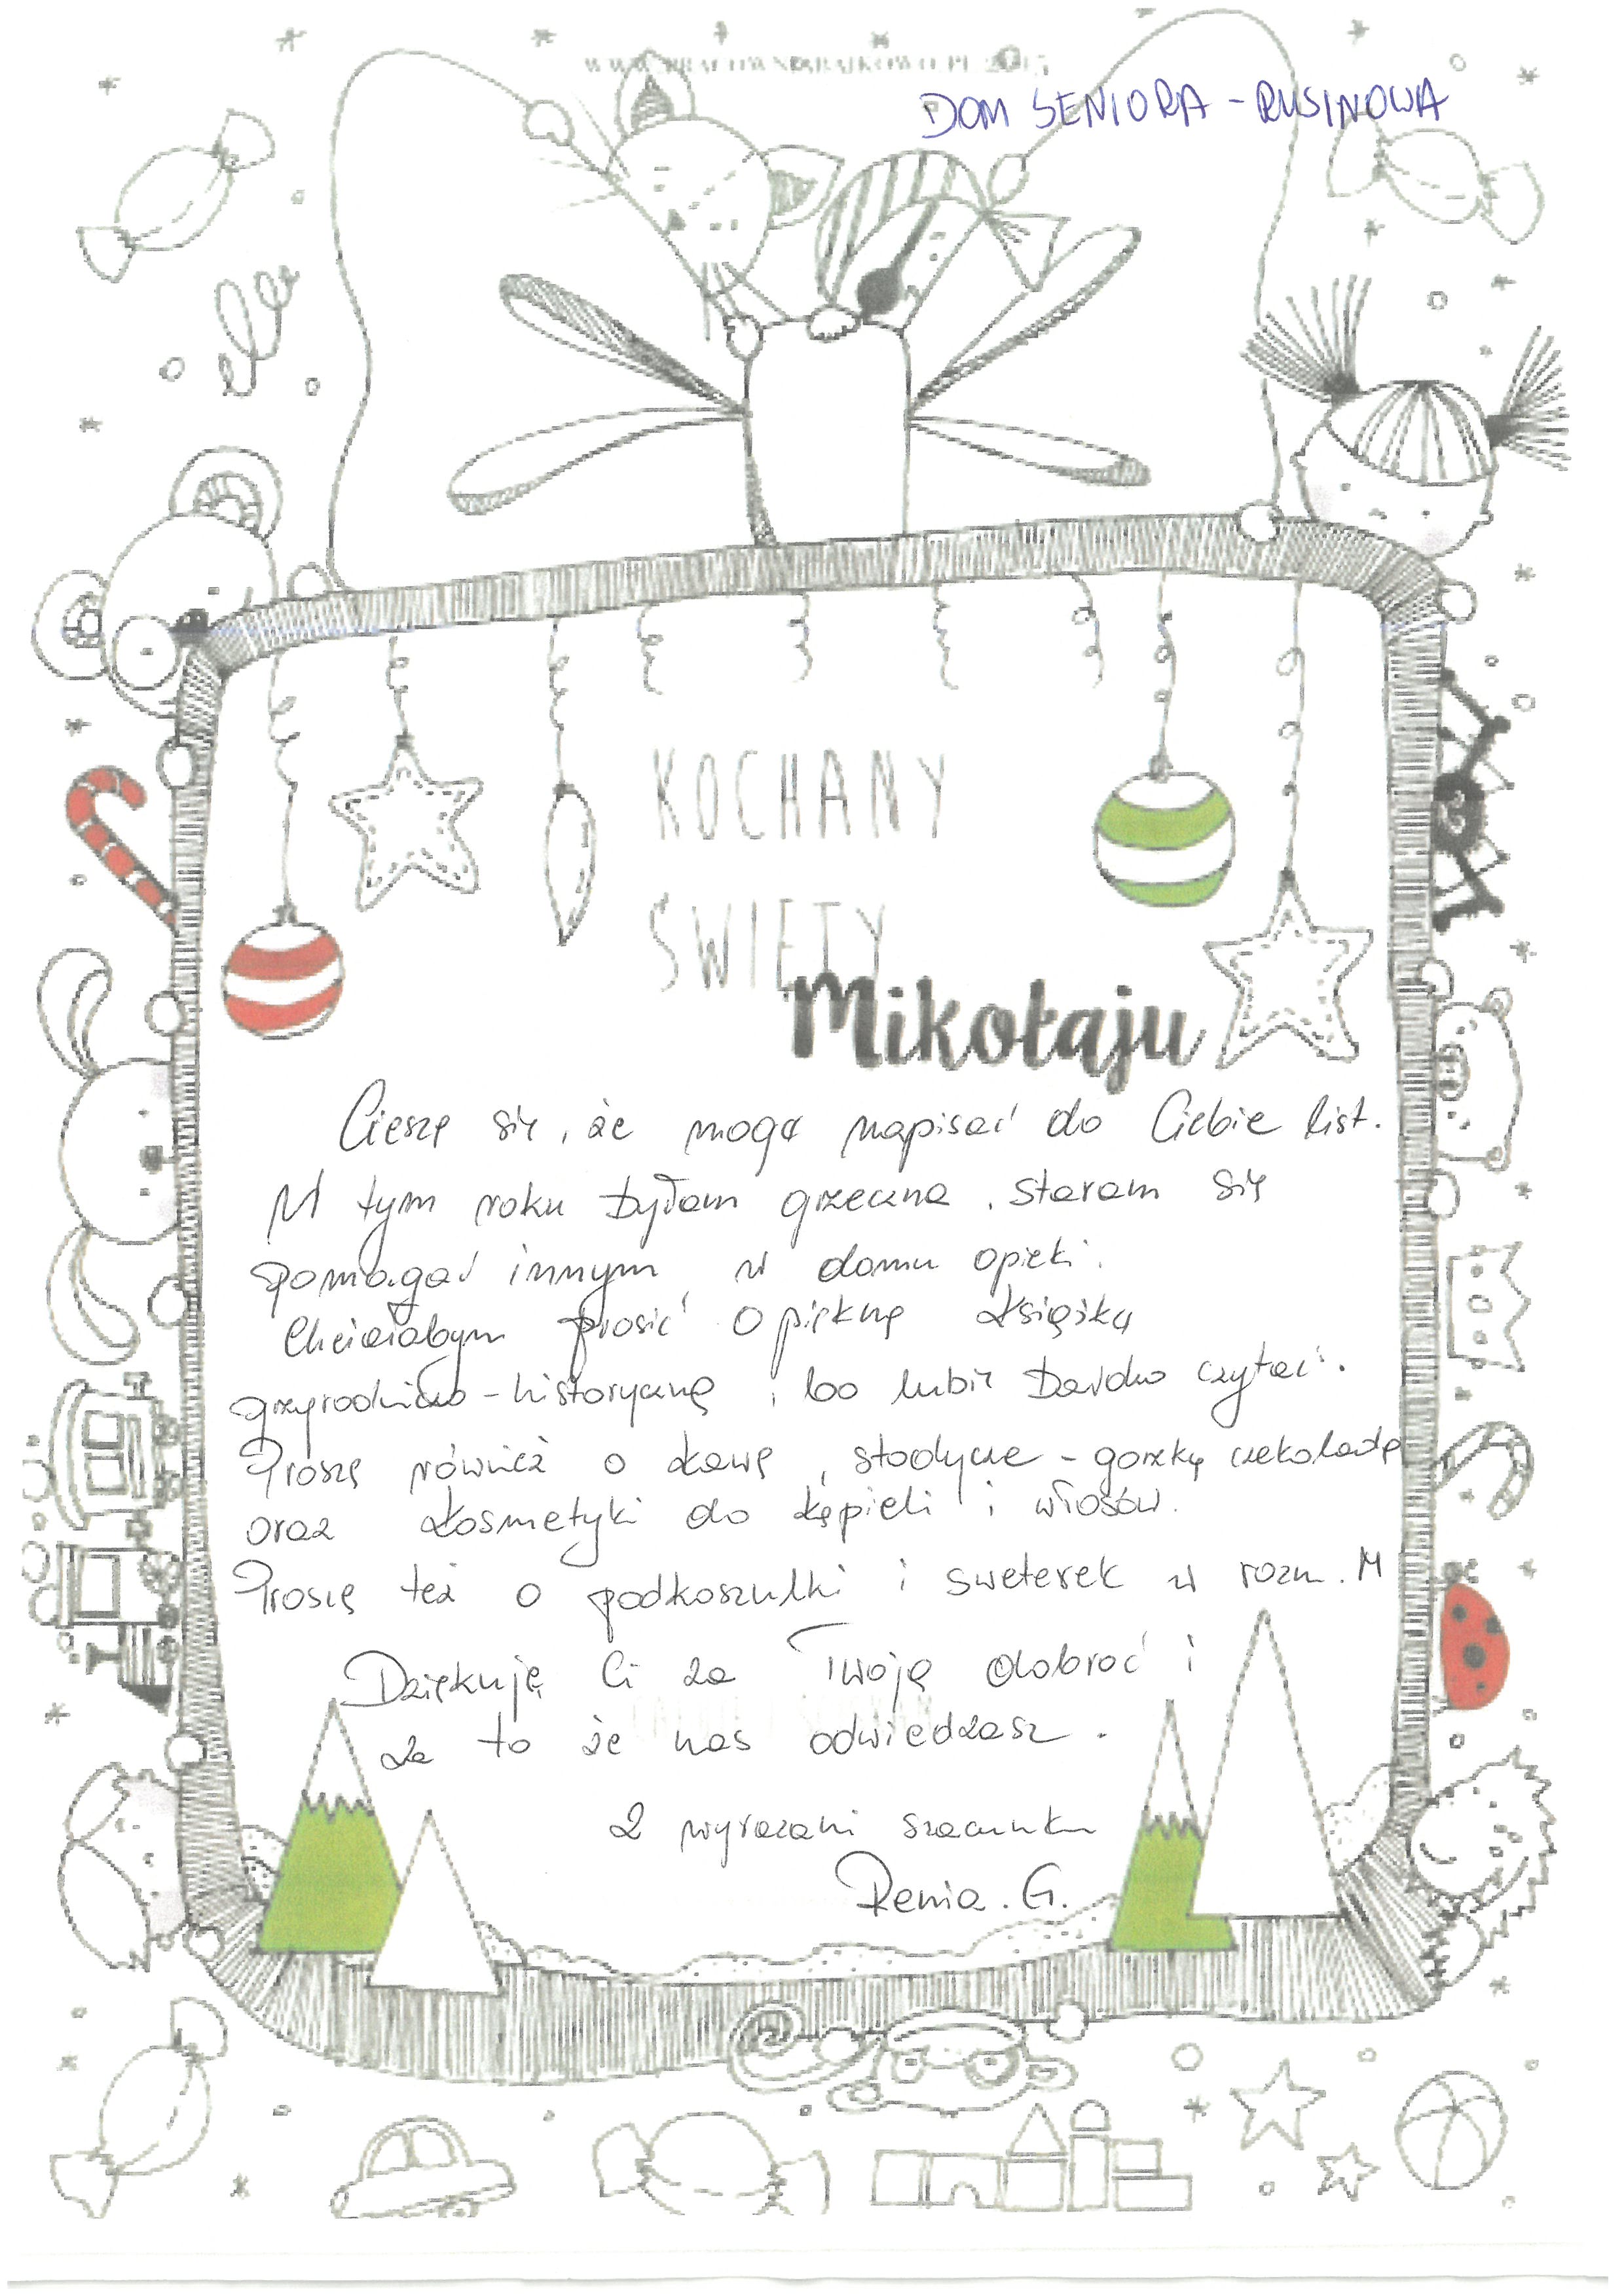 WWW.PRACOWNIABAJKOWO.PL 2015
DOM SENIORA - RUSINOWA
KOCHANY
ŚWIĘTY
Mikołaju
Cieszę się, że mogę napisać do Ciebie list.
W tym roku byłam grzeczna, staram się
pomagać innym w domu opieki.
Chciałabym prosić o piękną książkę
przyrodniczo-historyczną, bo lubię bardzo czytać.
Proszę również o kawę, słodycze - gorzką czekoladę
oraz kosmetyki do kąpieli i włosów.
Proszę też o podkoszulki i sweterek w rozm. M
Dziękuję Ci za Twoją dobroć i
za to że nas odwiedzasz.
Z wyrazami szacunku
Renia. G.